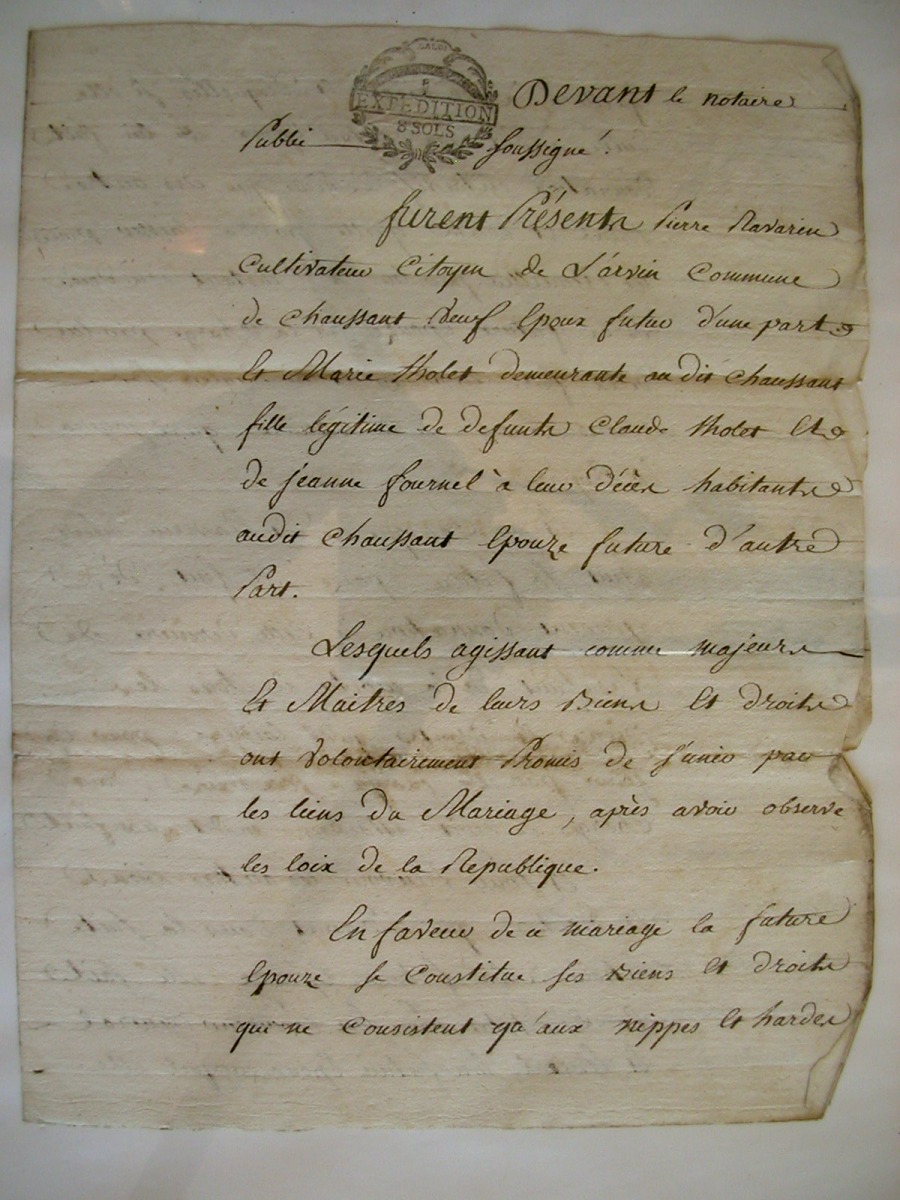 EXPEDITION
8 SOLS
Devant le notaire
Public soussigné.
furent Présents Pierre Navarin
Cultivateur Citoyen de Larvin Commune
de Chaussant veuf Epoux futur d'une part
Et Marie tholet demeurante audit Chaussant
fille légitime de defunts Claude tholet Et
de jeanne fournel à leur décès habitants
audit Chaussant Epouze future d'autre
Part.
Lesquels agissant comme majeurs
Et Maitres de leurs Biens Et droits
ont volontairement Promis de s'unir par
les liens du Mariage, après avoir observé
les loix de la Republique.
En faveur de ce mariage la future
Epouze se Constitue ses Biens Et droits
qui ne Consistent qu'aux nippes Et hardes